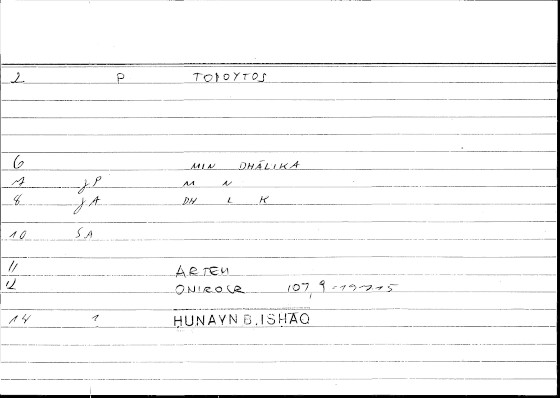 2 P ΤΟΙΟΥΤΟΣ
6 MIN DHĀLIKA
7 jP M N
8 jA DH L K
10 SA
11 ARTEM
12 ONIROCR 107,9
14 1 HUNAYN B. ISHAQ